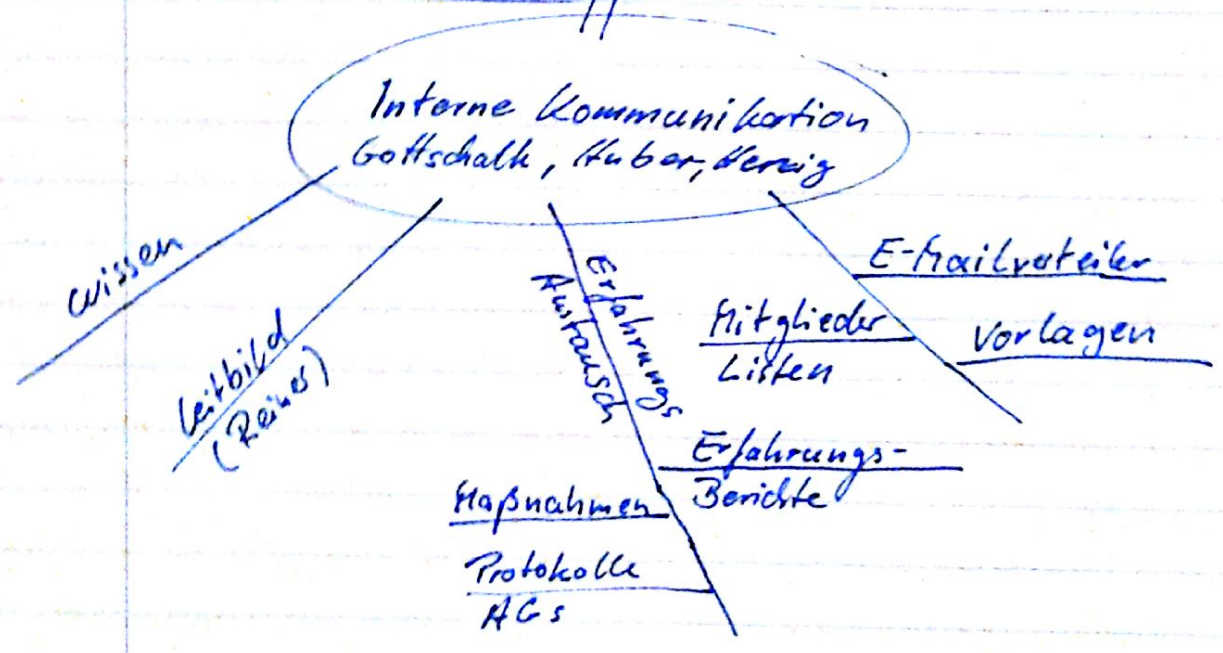 Interne Kommunikation
Gottschalk, Huber, Herzig
Wissen
Leitbild
(Reines)
Erfahrungs
Austausch
E-Mailverteiler
Mitglieder
Listen
Vorlagen
Erfahrungs-
Berichte
Maßnahmen
Protokolle
AGs